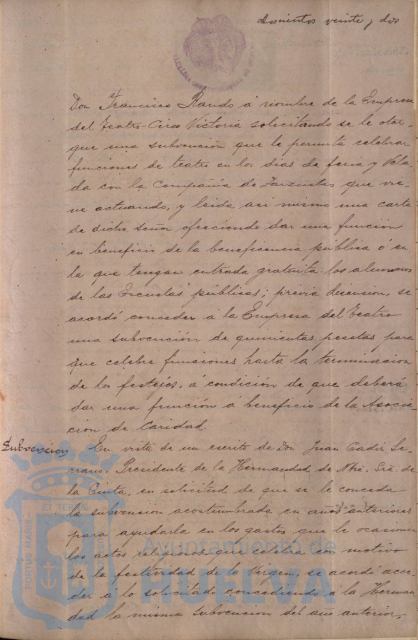 doscientos veinte y dos
Don Francisco Rando á nombre de la Empresa
del Teatro-Circo Victoria solicitando se le otor-
gue una subvencion que le permita celebrar
funciones de teatro en los dias de feria y Vela-
da con la Compañia de Zarzuelas que vie-
ne actuando, y leida asi mismo una carta
de dicho señor ofreciendo dar una funcion
en beneficio de la beneficencia publica ó en
la que tengan entrada gratuita los alumnos
de las Escuelas públicas; previa discusion, se
acordó conceder á la Empresa del teatro
una subvencion de quinientas pesetas para
que celebre funciones hasta la terminacion
de los festejos, á condicion de que deberá
dar una funcion á beneficio de la Asocia-
cion de Caridad.
Subvencion En vista de un escrito de Don Juan Cadiz Se-
rrano, Presidente de la Hermandad de Ntra. Sra. de
la Cinta, en solicitud de que se le conceda
la subvencion acostumbrada en años anteriores
para ayudarle en los gastos que le ocasionan
los actos religiosos que celebra con motivo
de la festividad de la Virgen, se acordó acce-
der á lo solicitado concediendo á la Herman-
dad la misma subvencion del año anterior,
Ayuntamiento de
HUELVA